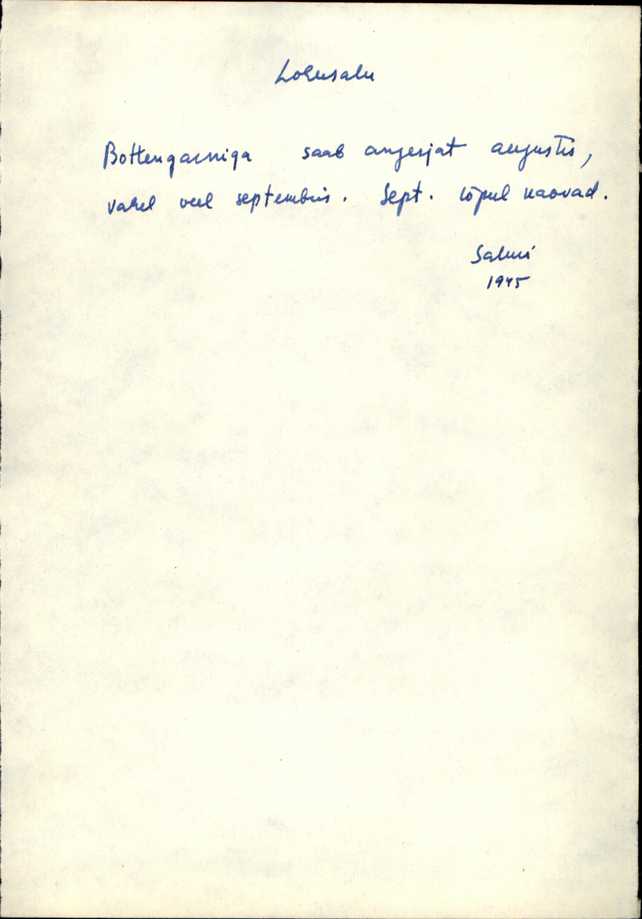 Lohusalu
Bottengarniga saab angerjat augustis,
vahel veel septembris. Sept. lõpul kaovad.
Salmi
1945